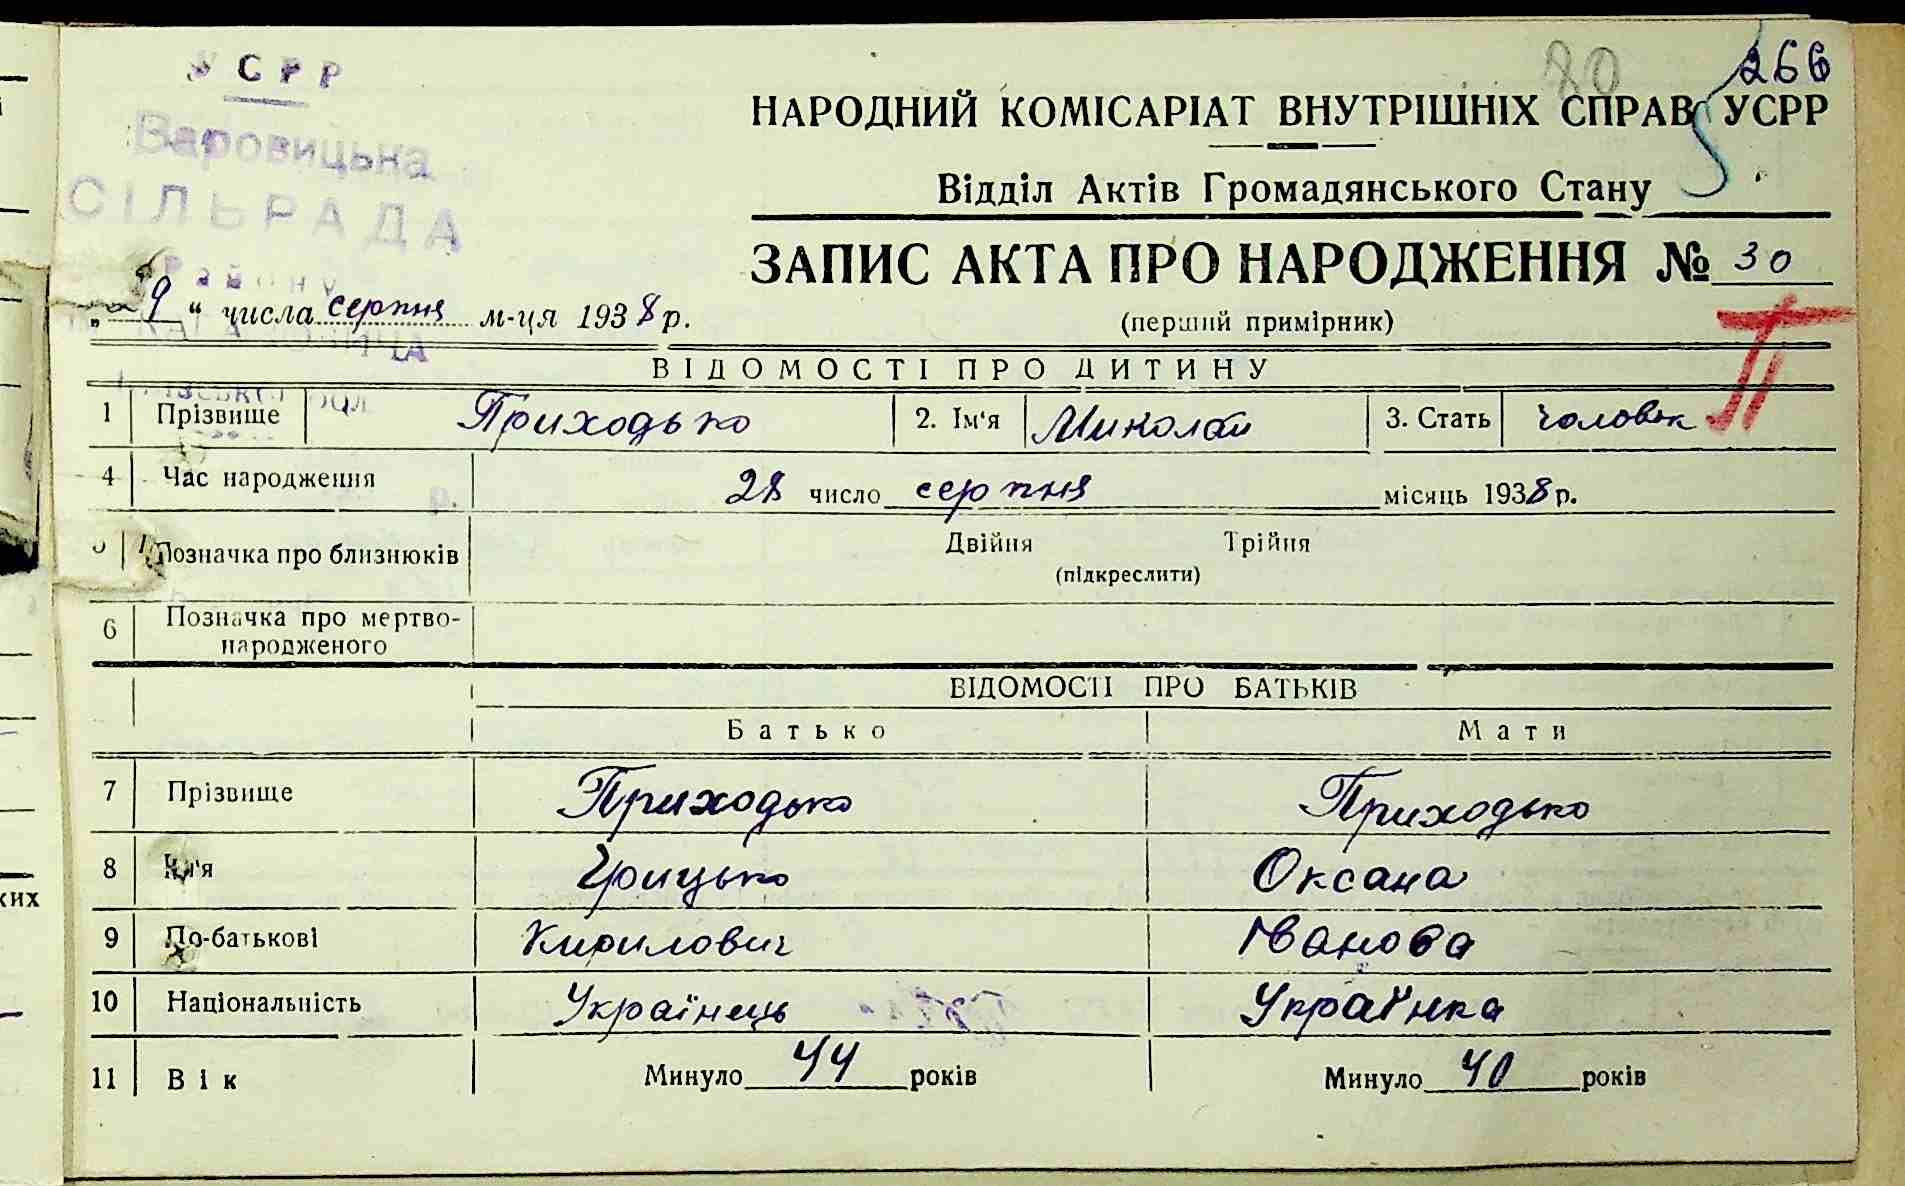 УСРР
Варовицька
СІЛЬРАДА
Району
80 266
НАРОДНИЙ КОМІСАРІАТ ВНУТРІШНІХ СПРАВ УСРР
Відділ Актів Громадянського Стану
ЗАПИС АКТА ПРО НАРОДЖЕННЯ № 30
„29“ числа серпня м-ця 1938 р.
(перший примірник)
П
ВІДОМОСТІ ПРО ДИТИНУ
1 Прізвище Приходько 2. Ім'я Миколай 3. Стать чоловік
4 Час народження 28 число серпня місяць 1938 р.
5 Позначка про близнюків Двійня Трійня
(підкреслити)
6 Позначка про мертво-
народженого
ВІДОМОСТІ ПРО БАТЬКІВ
Батько Мати
7 Прізвище Приходько Приходько
8 Ім'я Грицько Оксана
9 По-батькові Кирилович Іванова
10 Національність Українець Українка
11 Вік Минуло 44 років Минуло 40 років
ких